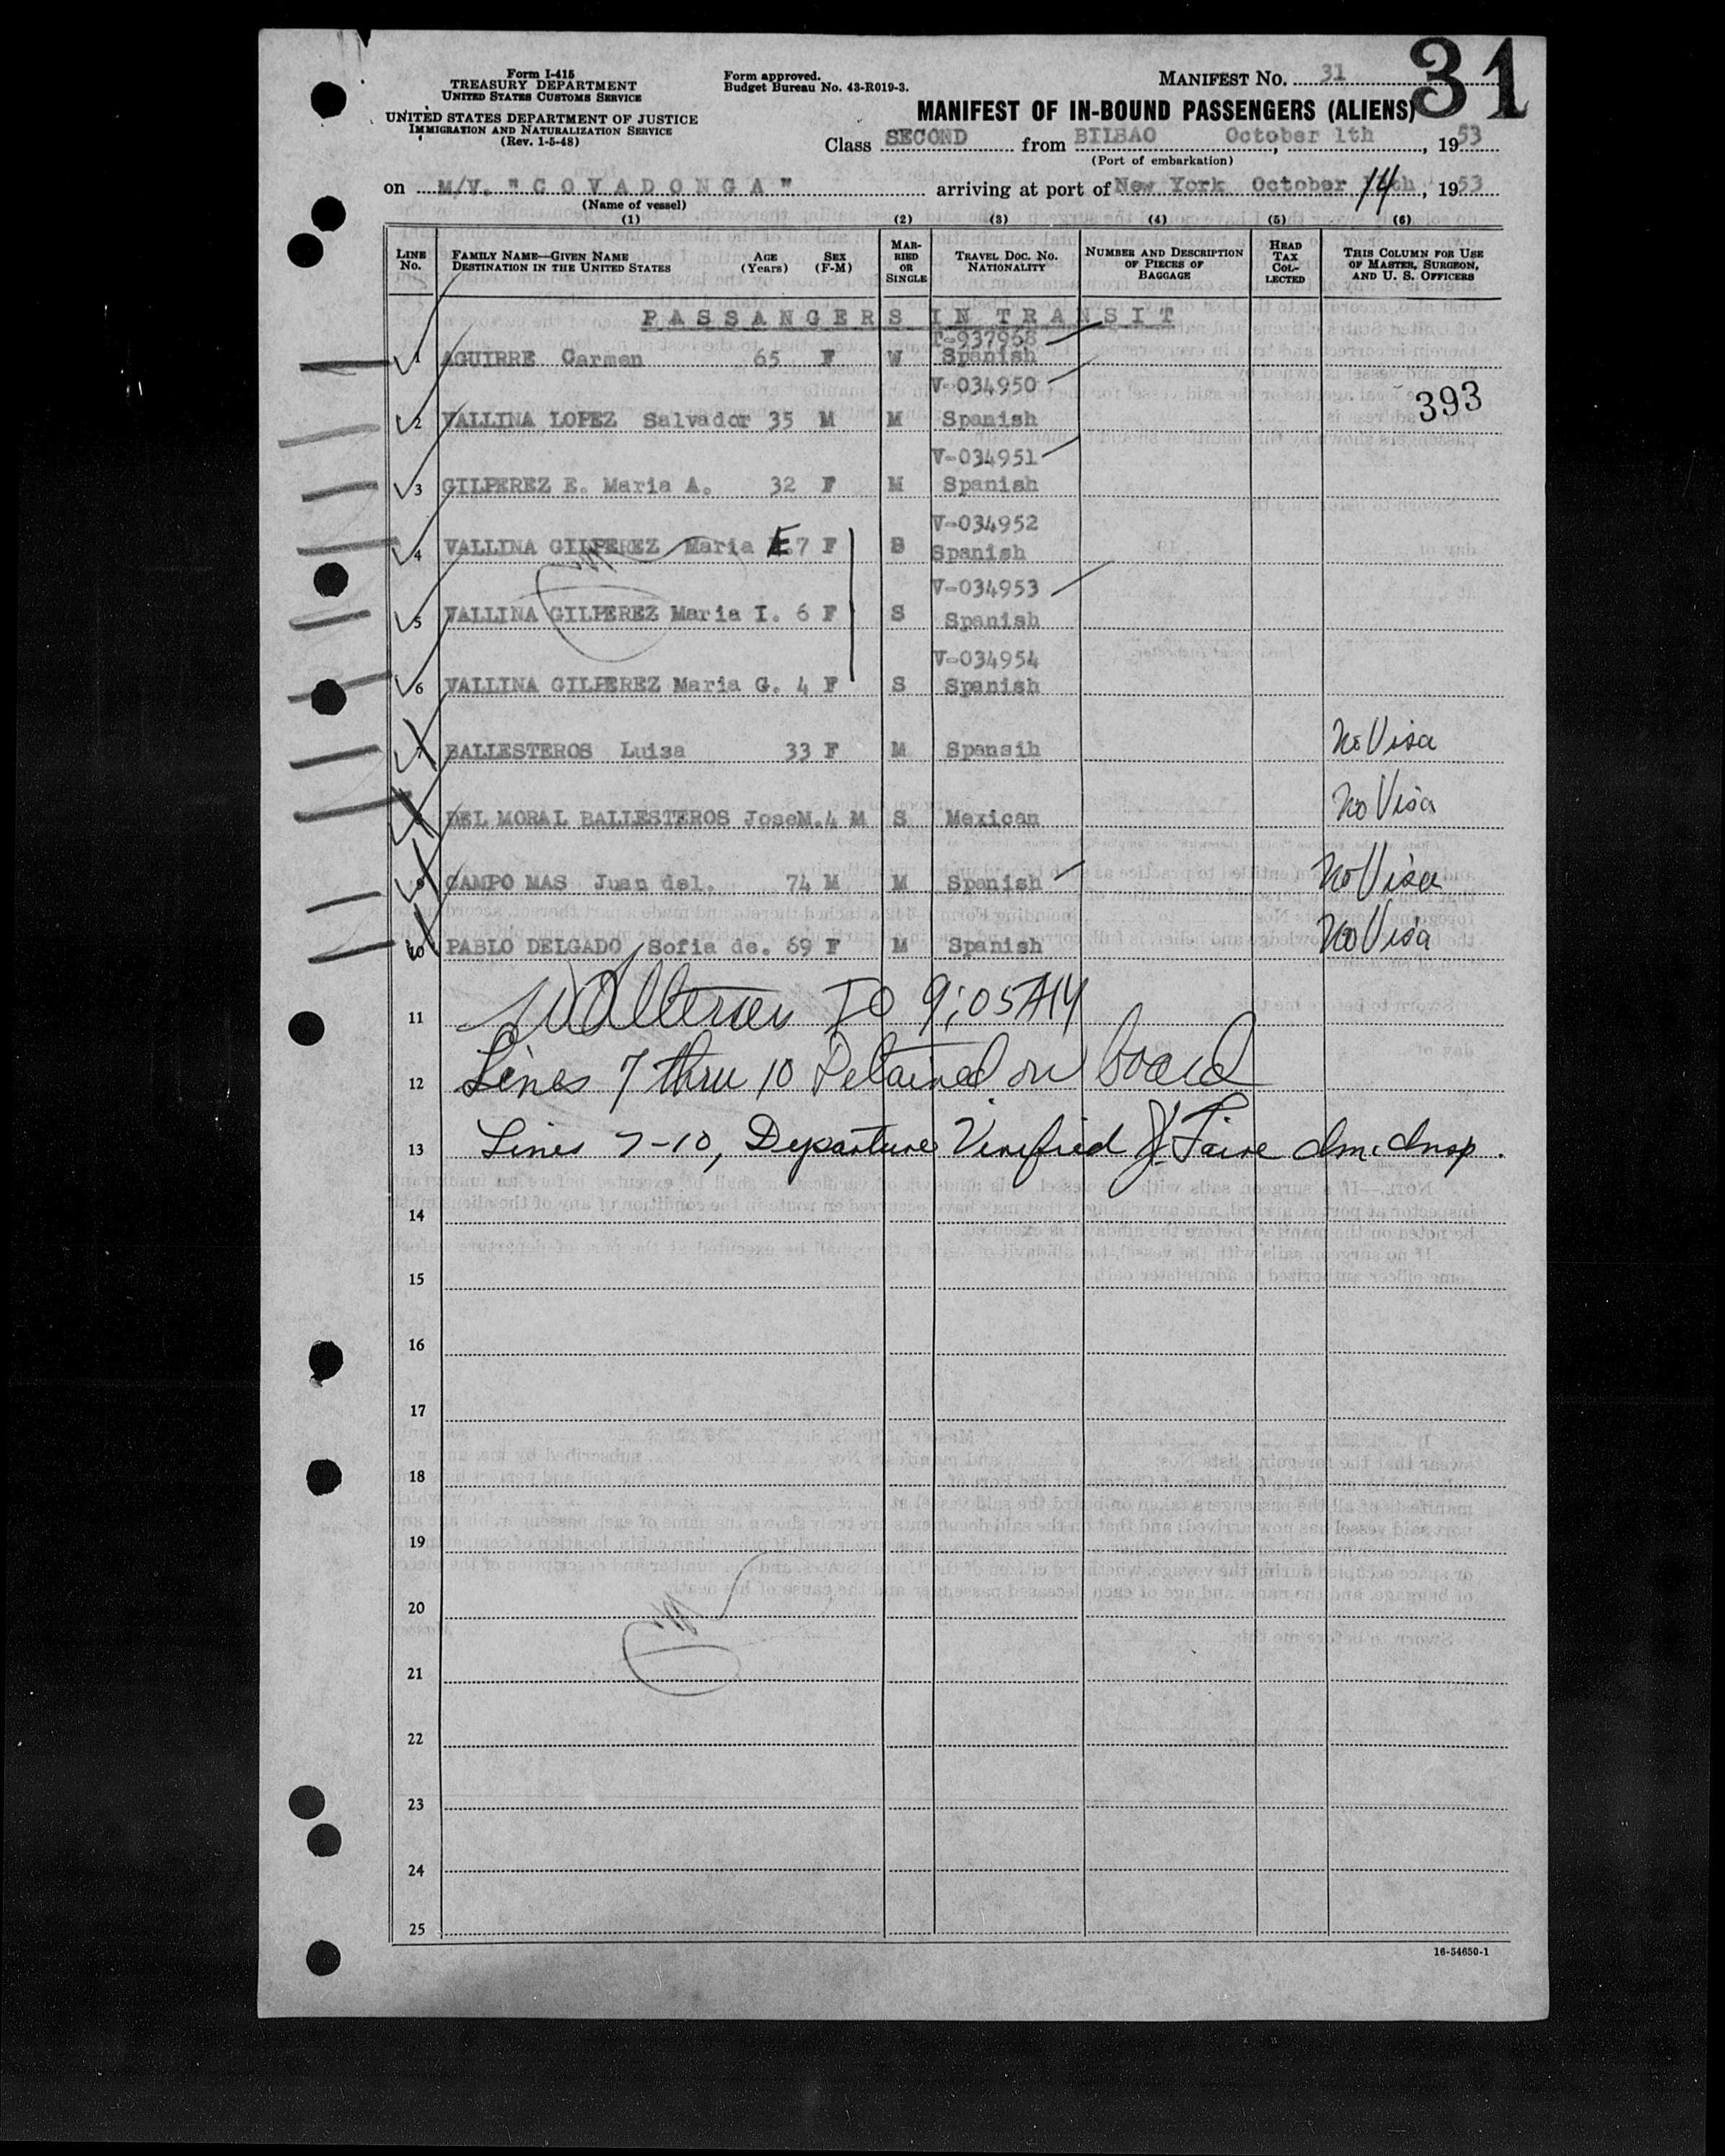 Form I-415
TREASURY DEPARTMENT
UNITED STATES CUSTOMS SERVICE
UNITED STATES DEPARTMENT OF JUSTICE
IMMIGRATION AND NATURALIZATION SERVICE
(Rev. 1-5-48)
Form approved.
Budget Bureau No. 43-R019-3.
MANIFEST NO. 31
31
MANIFEST OF IN-BOUND PASSENGERS (ALIENS)
Class SECOND from BILBAO, October 1th, 1953
(Port of embarkation)
on M/V. "COVADONGA" arriving at port of New York October 14th, 1953
(Name of vessel)
(1) (2) (3) (4) (5) (6)
LINE NO.
FAMILY NAME—GIVEN NAME DESTINATION IN THE UNITED STATES
AGE (Years)
SEX (F-M)
MARRIED OR SINGLE
TRAVEL DOC. NO. NATIONALITY
NUMBER AND DESCRIPTION OF PIECES OF BAGGAGE
HEAD TAX COLLECTED
THIS COLUMN FOR USE OF MASTER, SURGEON, AND U. S. OFFICERS
PASSANGERS IN TRANSIT
T-937968
1 AGUIRRE Carmen 65 F W Spanish
V-034950
393
2 VALLINA LOPEZ Salvador 35 M M Spanish
V-034951
3 GILPEREZ E. Maria A. 32 F M Spanish
V-034952
4 VALLINA GILPEREZ Maria E. 7 F S Spanish
V-034953
5 VALLINA GILPEREZ Maria I. 6 F S Spanish
V-034954
6 VALLINA GILPEREZ Maria G. 4 F S Spanish
7 BALLESTEROS Luisa 33 F M Spansih No Visa
8 DEL MORAL BALLESTEROS JoseM. 4 M S Mexican No Visa
9 CAMPO MAS Juan del. 74 M M Spanish No Visa
10 PABLO DELGADO Sofia de. 69 F M Spanish No Visa
11 9:05 AM
12 Lines 7 thru 10 Detained on board
13 Lines 7-10, Departure Verified J. Faire Im. Insp.
14
15
16
17
18
19
20
21
22
23
24
25
16-54650-1